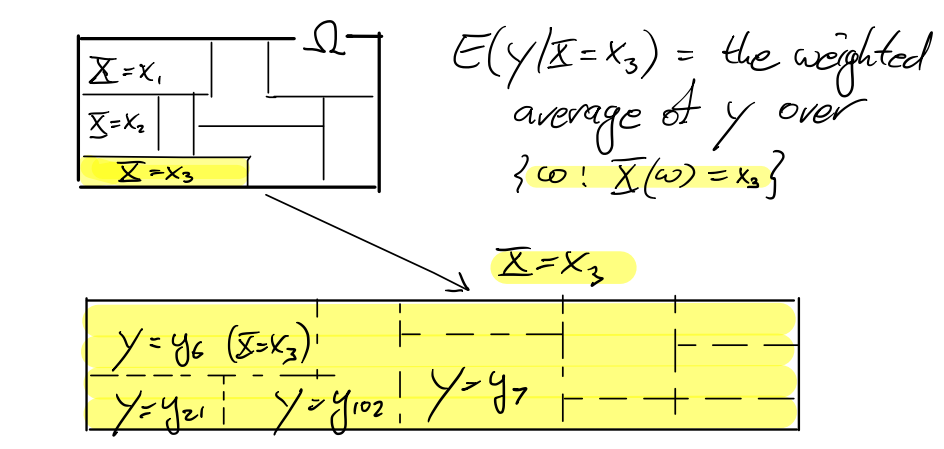 Ω
X = x₁
X = x₂
X = x₃
E(Y/X = x₃) = the weighted
average of Y over
{ω : X(ω) = x₃}
X = x₃
Y = y₆ (X = x₃)
Y = y₂₁ Y = y₁₀₂ Y = y₇